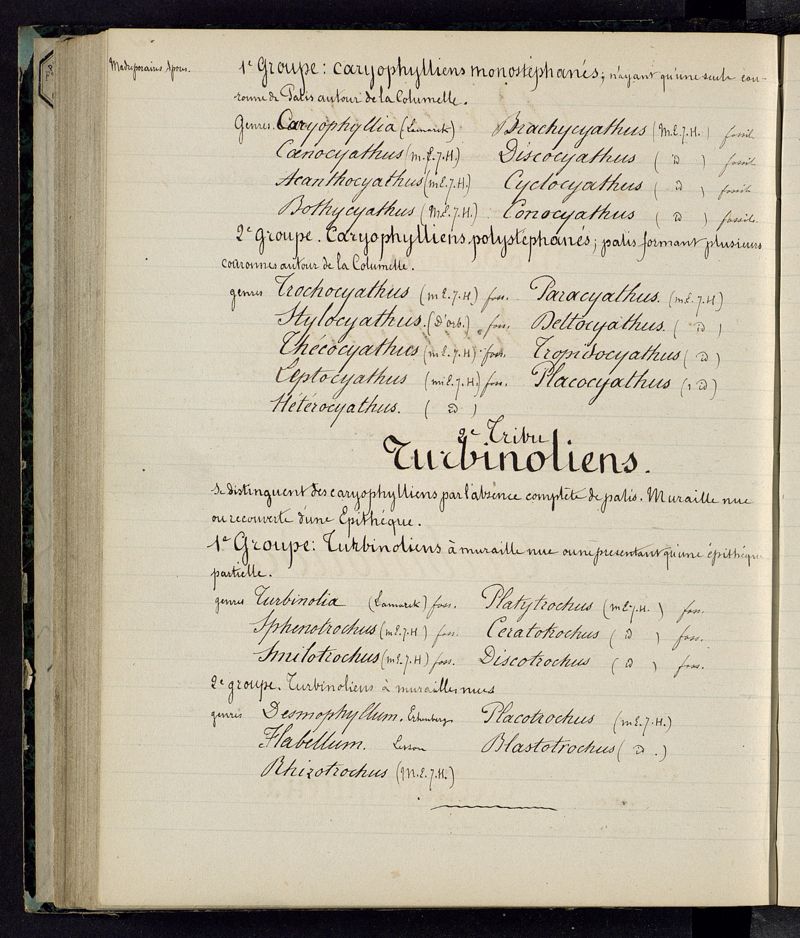 Madréporaires Apores.
1e Groupe: Caryophylliens monostéphanés; n'ayant qu'une seule cou-
ronne de Palis autour de la Columelle.
Genres. Caryophyllia (Lamarck) Brachycyathus (M.E.J.H.) fossil
Cœnocyathus (m.E.J.H.) Discocyathus ( D ) fossil
Acanthocyathus (m E.J.H.) Cyclocyathus ( D ) fossile
Bothycyathus (M.E.J.H.) Conocyathus ( D ) fossile.
2e groupe. Caryophylliens polystéphanés; palis formant plusieurs
couronnes autour de la Columelle.
genres Trochocyathus (m E.J.H) foss. Paracyathus. (m.E.J.H)
Stylocyathus. (d'orb.) foss. Deltocyathus. ( D )
Thécocyathus (m E.J.H) foss. Tropidocyathus ( D )
Leptocyathus (mil E.J.H.) foss. Placocyathus ( D )
Hétérocyathus. ( D )
2e Tribu
Turbinoliens.
Se distinguent des caryophylliens par l'absence complète de palis. Muraille nue
ou recouverte d'une Epithèque.
1e Groupe: Turbinoliens à muraille nue ou ne présentant qu'une épithèque
partielle.
genres Turbinolia (Lamarck) foss. Platytrochus (m E.J.H.) foss.
Sphenotrochus (m E.J.H) foss. Ceratotrochus ( D ) foss.
Smilotrochus (m E.J.H) foss. Discotrochus ( D ) foss.
2e groupe. Turbinoliens à murailles nues
genres Desmophyllum. Erhenberg Placotrochus (m E.J.H.)
Flabellum. Lesson Blastotrochus ( D .)
Rhizotrochus (M.E.J.H.)